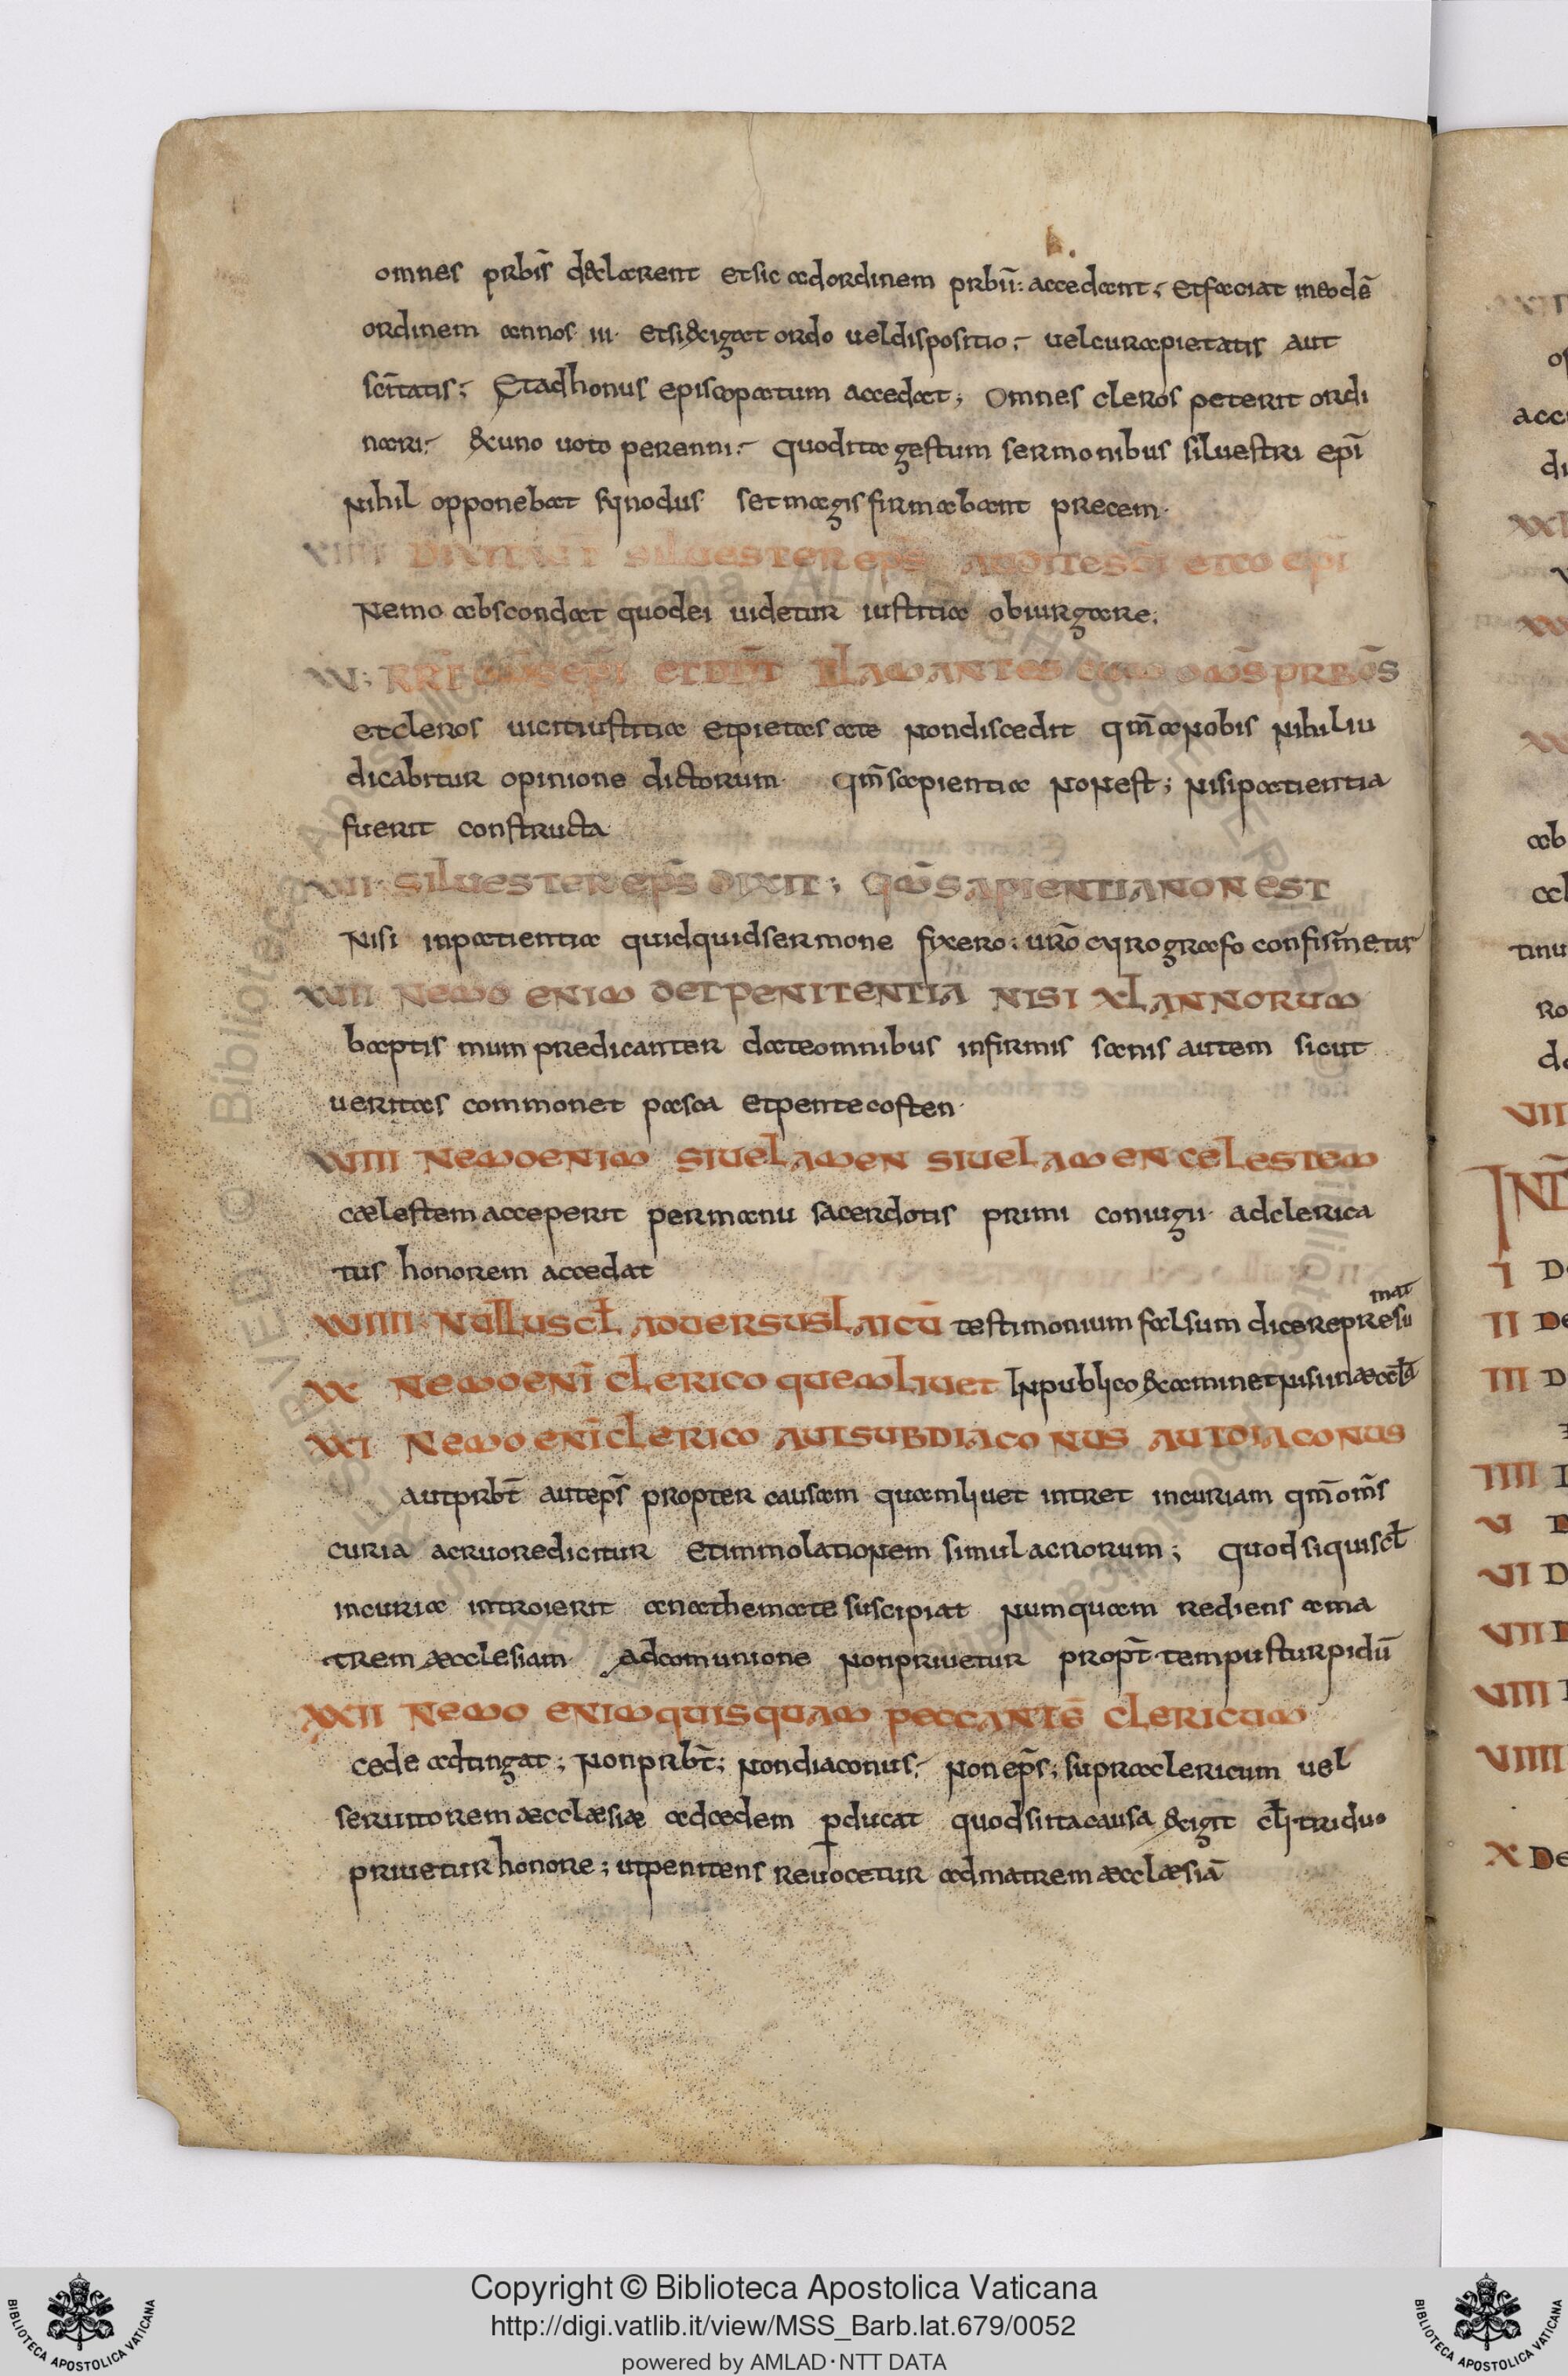 omnes prbis̄ declarent et sic ad ordinem prbīi: accedant; et faciat in eodē
ordinem annos iii· et si exigat ordo uel dispositio; uel cura pietatis aut
sc̄itatis; Et ad honus episcopatum accedat; Omnes cleros peterit ordi
nari; ex uno uoto perenni; quod ita gestum sermonibus siluestri epī
Nihil opponebat synodus· set magis firmabant precem·
XIIII DIXIT AUT̄ SILUESTER EPS̄
Nemo abscondat quod ei uidetur iustitia obiurgare;
XV; RR̄T OM̄S EPĪ ET DIX̄T CLAMANTES CUM OM̄S PRBŌS
et cleros uicit iustitia et pietas a te Non discedit qm̄ a Nobis Nihil iu
dicabitur opinione dictorum· Qm̄ sapientia NoNest; Nisi patientia
fuerit constructa·
XVI· SILUESTER EPS̄ DIXIT; QM̄ SAPIENTIA NON EST
Nisi in patientia quidquid sermone fixero; ur̄o cyrografo confirmetur
XVII NEMO ENIM DET PENITENTIA NISI XL ANNORUM
baptismum predicanter date omnibus infirmis sanis autem sicut
ueritas commonet pasca et pentecosten·
XVIII NEMO ENIM SIUE LAMEN SIUE LAMEN CELESTEM
cælestem acceperit per manu sacerdotis primi coniugii· ad clerica
tus honorem accedat
mat
XVIIII· NULLUS CL̄ ADUERSUS LAICŪ testimonium falsum dicere presu
XX NEMO ENĪ CLERICO QUEMLIUET In publico examinet nisi in æccl̄a
XXI NEMO ENĪ CLERICO AUT SUBDIACONUS AUT DIACONUS
aut prbt̄ aut eps̄ propter causam quamliuet intret in curiam qm̄ om̄s
curia acruore dicitur et immolatioNem simulacrorum; Quod si quis cl̄
in curia introierit anathemate suscipiat Numquam rediens a ma
trem æcclesiam ad comunione Non priuetur propt̄ tempus turpidū
XXII NEMO ENIM QUISQUAM PECCANTĒ CLERICUM
cede adtingat; Non prbt̄; Non diaconus; Non eps̄; supra clericum uel
seruitorem æcclæsiæ ad cedem ꝑducat quod si ita causa exigit cl̄i triduo
priuetur honore; ut penitens reuocetur ad matrem æcclæsiā
Copyright © Biblioteca Apostolica Vaticana
http://digi.vatlib.it/view/MSS_Barb.lat.679/0052
powered by AMLAD·NTT DATA
BIBLIOTECA APOSTOLICA VATICANA
BIBLIOTECA APOSTOLICA VATICANA